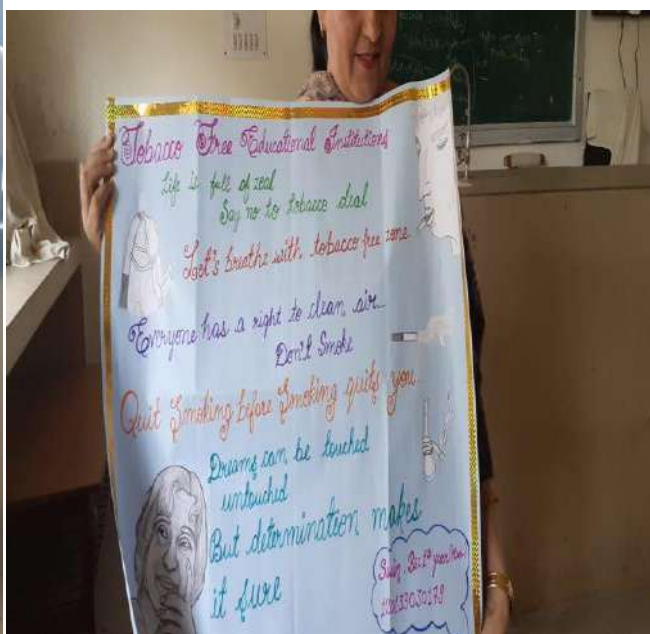 Tobacco Free Educational Institutions
Life is full of zeal
Say no to tobacco deal
Let's breathe with tobacco free zone
Everyone has a right to clean air
Don't Smoke
Quit Smoking before Smoking quits you
Dreams can be touched
untouched
But determination makes
it sure